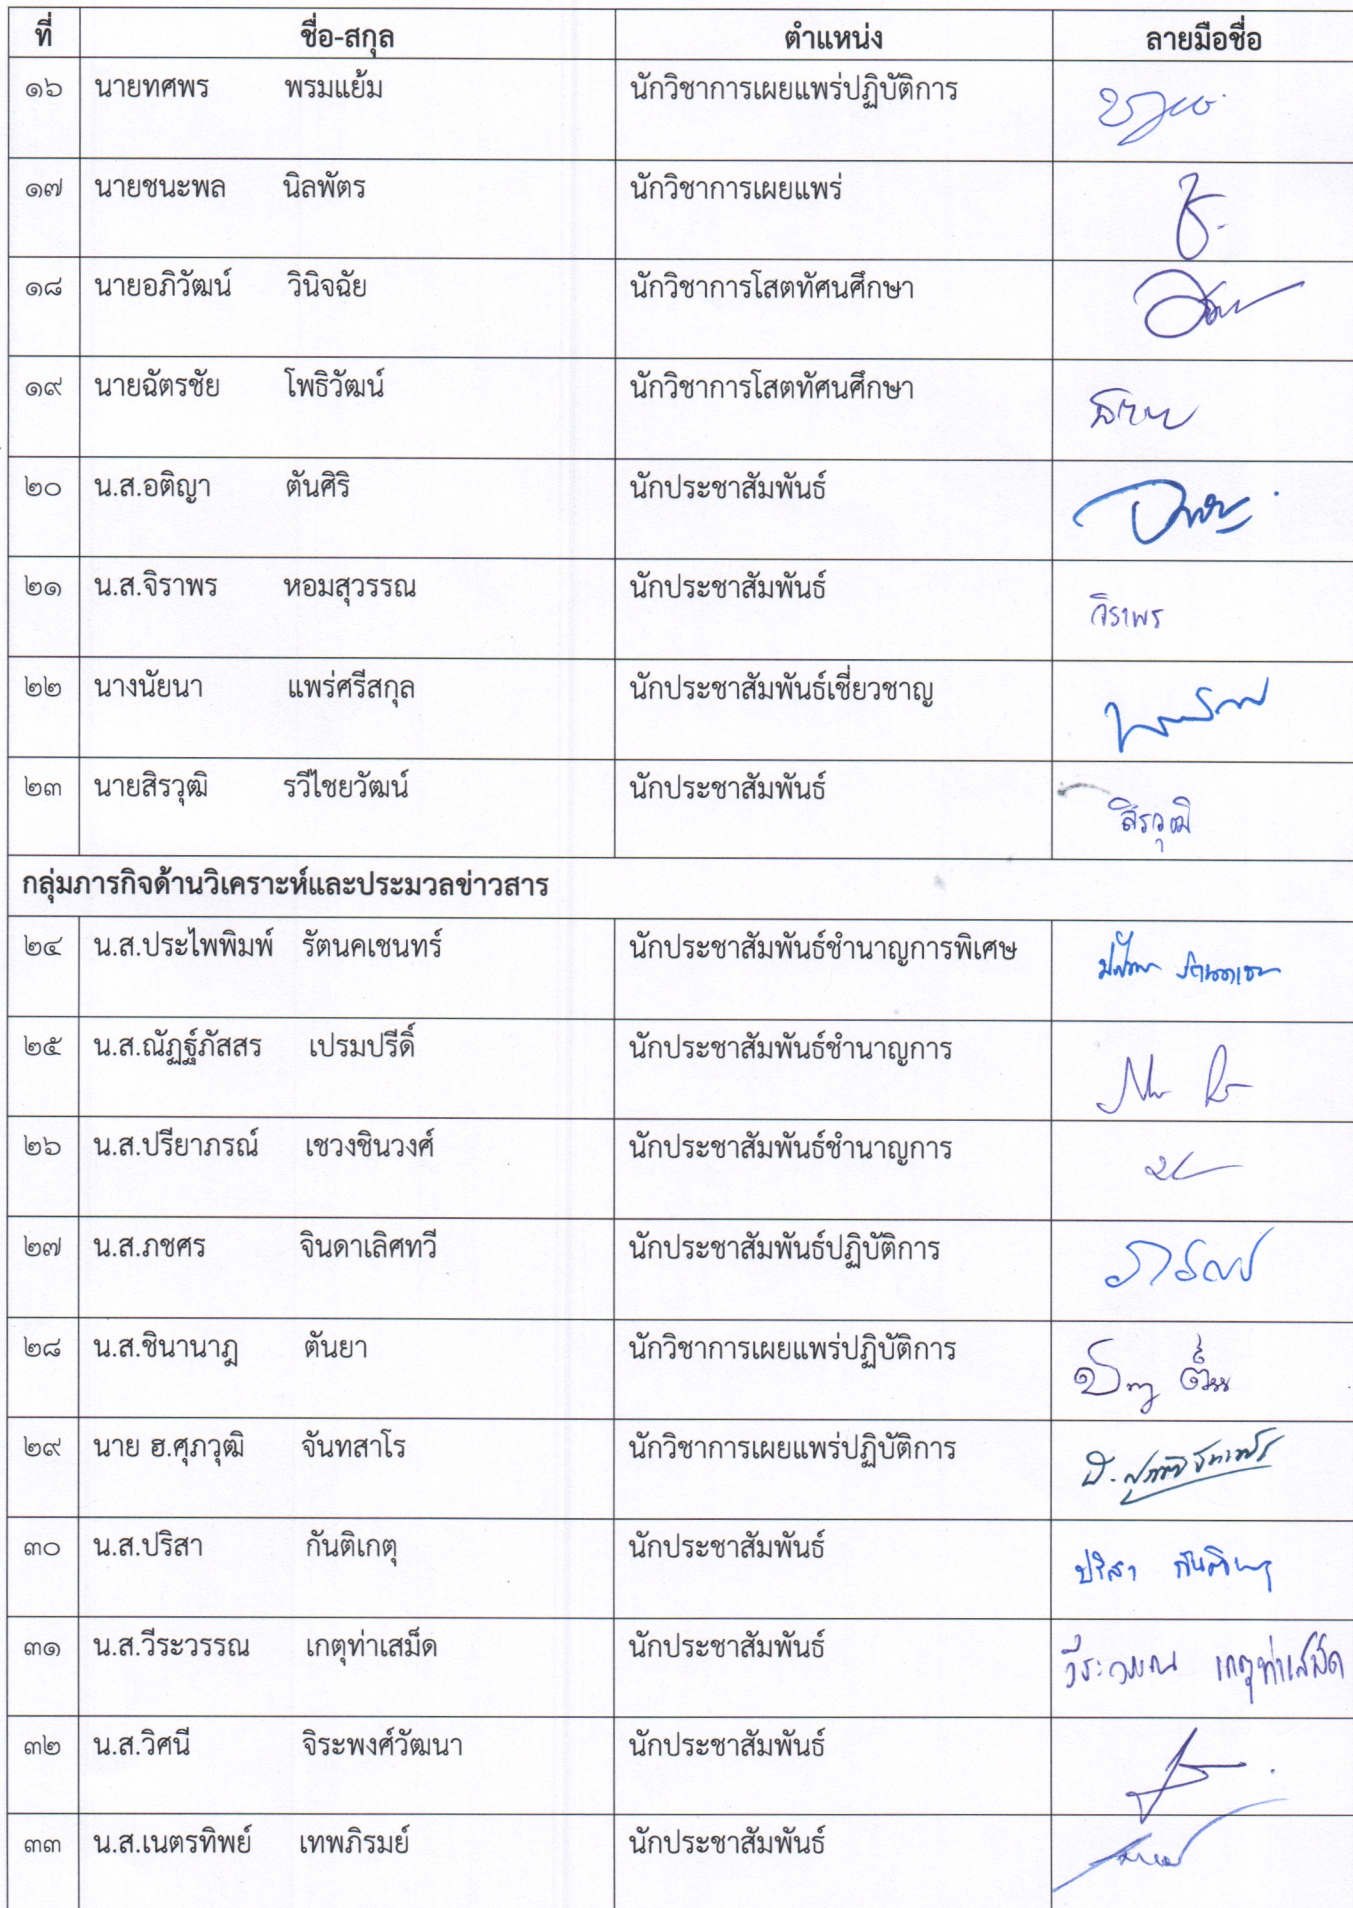 ที่ ชื่อ-สกุล ตำแหน่ง ลายมือชื่อ
๑๖ นายทศพร พรมแย้ม นักวิชาการเผยแพร่ปฏิบัติการ
๑๗ นายชนะพล นิลพัตร นักวิชาการเผยแพร่
๑๘ นายอภิวัฒน์ วินิจฉัย นักวิชาการโสตทัศนศึกษา
๑๙ นายฉัตรชัย โพธิวัฒน์ นักวิชาการโสตทัศนศึกษา
๒๐ น.ส.อติญา ตันศิริ นักประชาสัมพันธ์
๒๑ น.ส.จิราพร หอมสุวรรณ นักประชาสัมพันธ์ จิราพร
๒๒ นางนัยนา แพร่ศรีสกุล นักประชาสัมพันธ์เชี่ยวชาญ
๒๓ นายสิรวุฒิ รวีไชยวัฒน์ นักประชาสัมพันธ์ สิรวุฒิ
กลุ่มภารกิจด้านวิเคราะห์และประมวลข่าวสาร
๒๔ น.ส.ประไพพิมพ์ รัตนคเชนทร์ นักประชาสัมพันธ์ชำนาญการพิเศษ
๒๕ น.ส.ณัฏฐ์ภัสสร เปรมปรีดิ์ นักประชาสัมพันธ์ชำนาญการ
๒๖ น.ส.ปรียาภรณ์ เชวงชินวงศ์ นักประชาสัมพันธ์ชำนาญการ
๒๗ น.ส.ภชศร จินดาเลิศทวี นักประชาสัมพันธ์ปฏิบัติการ
๒๘ น.ส.ชินานาฎ ตันยา นักวิชาการเผยแพร่ปฏิบัติการ
๒๙ นาย ฮ.ศุภวุฒิ จันทสาโร นักวิชาการเผยแพร่ปฏิบัติการ
๓๐ น.ส.ปริสา กันติเกตุ นักประชาสัมพันธ์ ปริสา กันติเกตุ
๓๑ น.ส.วีระวรรณ เกตุท่าเสม็ด นักประชาสัมพันธ์ วีระวรรณ เกตุท่าเสม็ด
๓๒ น.ส.วิศนี จิระพงศ์วัฒนา นักประชาสัมพันธ์
๓๓ น.ส.เนตรทิพย์ เทพภิรมย์ นักประชาสัมพันธ์